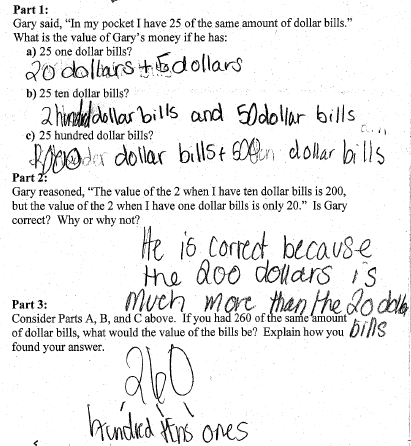 Part 1:
Gary said, “In my pocket I have 25 of the same amount of dollar bills.”
What is the value of Gary’s money if he has:
a) 25 one dollar bills?
20 dollars + 5 dollars
b) 25 ten dollar bills?
2 hundred dollar bills and 50 dollar bills
c) 25 hundred dollar bills?
dollar bills + dollar bills
Part 2:
Gary reasoned, “The value of the 2 when I have ten dollar bills is 200,
but the value of the 2 when I have one dollar bills is only 20.” Is Gary
correct? Why or why not?
He is correct because
the 200 dollars is
much more than the 20 dollar
bills
Part 3:
Consider Parts A, B, and C above. If you had 260 of the same amount
of dollar bills, what would the value of the bills be? Explain how you
found your answer.
260
hundred tens ones